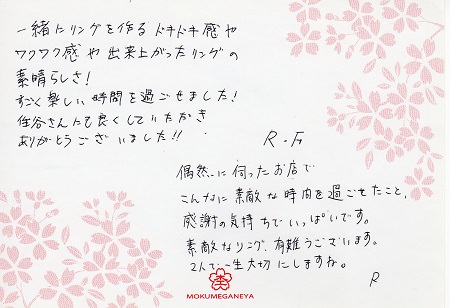 一緒にリングを作るドキドキ感や
ワクワク感や出来上がったリングの
素晴らしさ!
すごく楽しい時間を過ごせました!
住谷さんにも良くしていただき
ありがとうございました!!
R.F
偶然に伺ったお店で
こんなに素敵な時間を過ごせたこと、
感謝の気持ちでいっぱいです。
素敵なリング、有難うございます。
2人で一生大切にしますね。
R
MOKUMEGANEYA